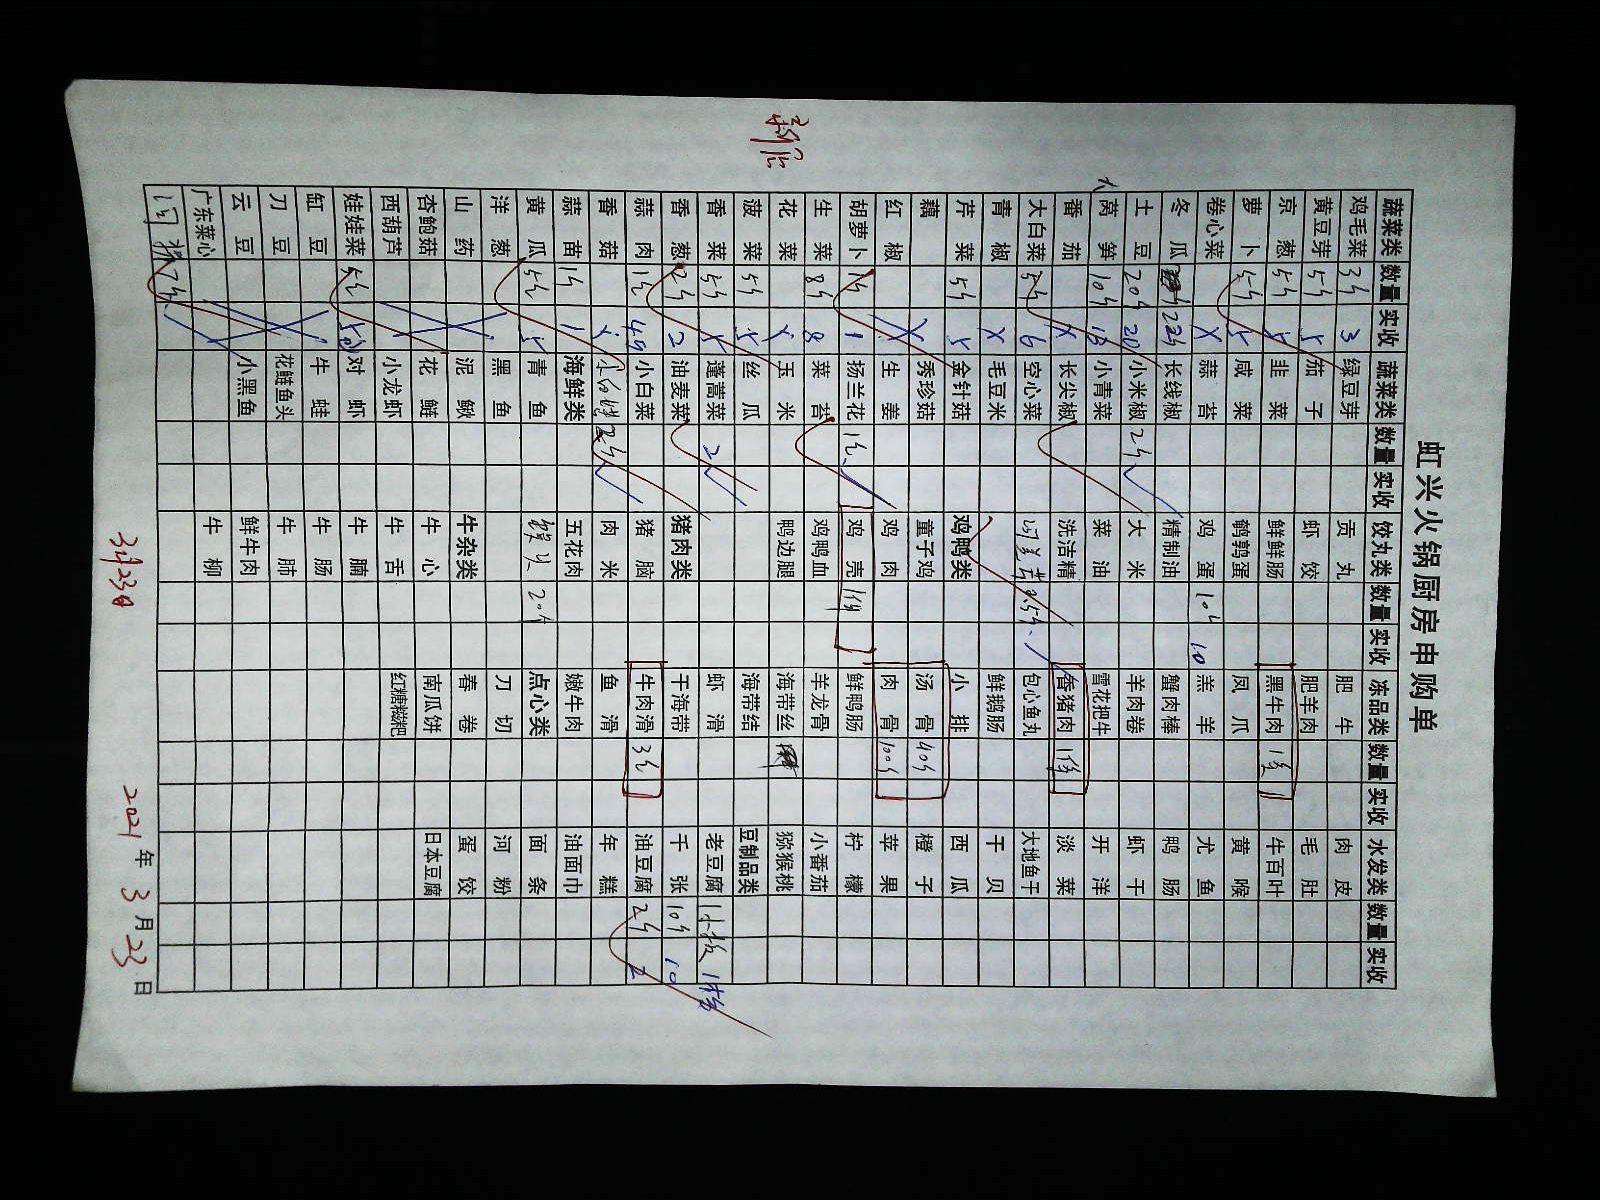 虹兴火锅厨房申购单
蔬菜类 数量 实收 蔬菜类 数量 实收 饺丸类 数量 实收 冻品类 数量 实收 水发类 数量 实收
鸡毛菜 3斤 3 绿豆芽 贡丸 肥牛 肉皮
黄豆芽 5斤 5 茄子 虾饺 肥羊肉 毛肚
京葱 5斤 5 韭菜 鲜鲜肠 黑牛肉 牛百叶
萝卜 5斤 5 咸菜 鹌鹑蛋 凤爪 黄喉
卷心菜 X 蒜苔 鸡蛋 10斤 10 羔羊 尤鱼
冬瓜 22斤 长线椒 精制油 蟹肉棒 鸭肠
土豆 20斤 20 小米椒 2斤 大米 羊肉卷 虾干
大
莴笋 10斤 小青菜 菜油 雪花把牛 开洋
番茄 X 长尖椒 洗洁精 香猪肉 1份 淡菜
大白菜 5斤 6 空心菜 2.5斤 包心鱼丸 大地鱼干
青椒 X 毛豆米 鲜鹅肠 干贝
芹菜 5斤 5 金针菇 鸡鸭类 小排 西瓜
藕 X 秀珍菇 童子鸡 汤骨 40斤 橙子
红椒 X 生姜 鸡肉 肉骨 100斤 苹果
胡萝卜 1斤 1 扬兰花 1包 鸡壳 1份 鲜鸭肠 柠檬
生菜 8斤 8 菜苔 鸡鸭血 羊龙骨 小番茄
花菜 X 玉米 鸭边腿 海带丝 猕猴桃
菠菜 5斤 5 丝瓜 海带结 豆制品类
香菜 5斤 5 蓬蒿菜 2 虾滑 老豆腐 1大板 1板
香葱 2斤 2 油麦菜 猪肉类 干海带 千张 10斤 10
蒜肉 1斤 小白菜 猪脑 牛肉滑 3包 油豆腐 2斤 2
香菇 2斤 肉米 鱼滑 年糕
蒜苗 1斤 1 海鲜类 五花肉 嫩牛肉 油面巾
黄瓜 5斤 5 青鱼 20个 点心类 面条
洋葱 黑鱼 刀切 河粉
山药 泥鳅 牛杂类 春卷 蛋饺
杏鲍菇 花鲢 牛心 南瓜饼 日本豆腐
西葫芦 小龙虾 牛舌 红糖糍粑
娃娃菜 5斤 对虾 牛腩
缸豆 牛蛙 牛肠
刀豆 花鲢鱼头 牛肺
云豆 小黑鱼 鲜牛肉
广东菜心 牛柳
3月23日
2021年3月23日